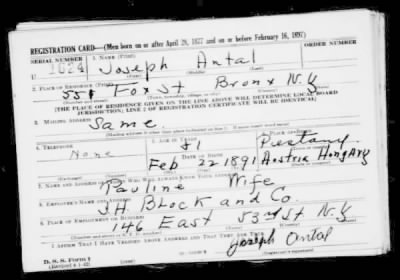 REGISTRATION CARD—(Men born on or after April 28, 1877 and on or before February 16, 1897)
SERIAL NUMBER 1. NAME (Print) ORDER NUMBER
U 1624 Joseph Antal
2. PLACE OF RESIDENCE (Print)
551 Fox St Bronx N.Y
[THE PLACE OF RESIDENCE GIVEN ON THE LINE ABOVE WILL DETERMINE LOCAL BOARD
JURISDICTION; LINE 2 OF REGISTRATION CERTIFICATE WILL BE IDENTICAL]
3. MAILING ADDRESS
Same
4. TELEPHONE 5. AGE IN YEARS 6. PLACE OF BIRTH
None 51 Piestany
DATE OF BIRTH
Feb 22 1891 Austria Hongary
7. NAME AND ADDRESS OF PERSON WHO WILL ALWAYS KNOW YOUR ADDRESS
Pauline Wife
8. EMPLOYER'S NAME AND ADDRESS
J.H. Block and Co.
9. PLACE OF EMPLOYMENT OR BUSINESS
146 East 53rd St N.Y
I AFFIRM THAT I HAVE VERIFIED ABOVE ANSWERS AND THAT THEY ARE TRUE.
D. S. S. Form 1
Joseph Antal